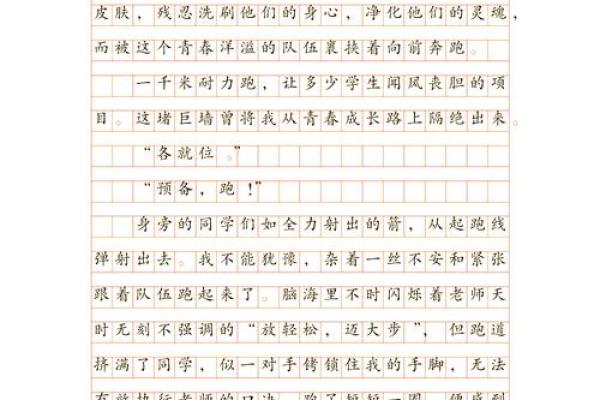 皮肤，残忍洗刷他们的身心，净化他们的灵魂，
而被这个青春洋溢的队伍裹挟着向前奔跑。
一千米耐力跑，让多少学生闻风丧胆的项
目。这堵巨墙曾将我从青春成长路上隔绝出来。
“各就位。”
“预备，跑！”
身旁的同学们如全力射出的箭，从起跑线
弹射出去。我不能犹豫，杂着一丝不安和紧张
跟着队伍跑起来了。脑海里不时闪烁着老师天
时无刻不强调的“放轻松，迈大步”，但跑道
挤满了同学，似一对手铐锁住我的手脚，无法
有效执行老师的口决，跑了短短一圈，便感到